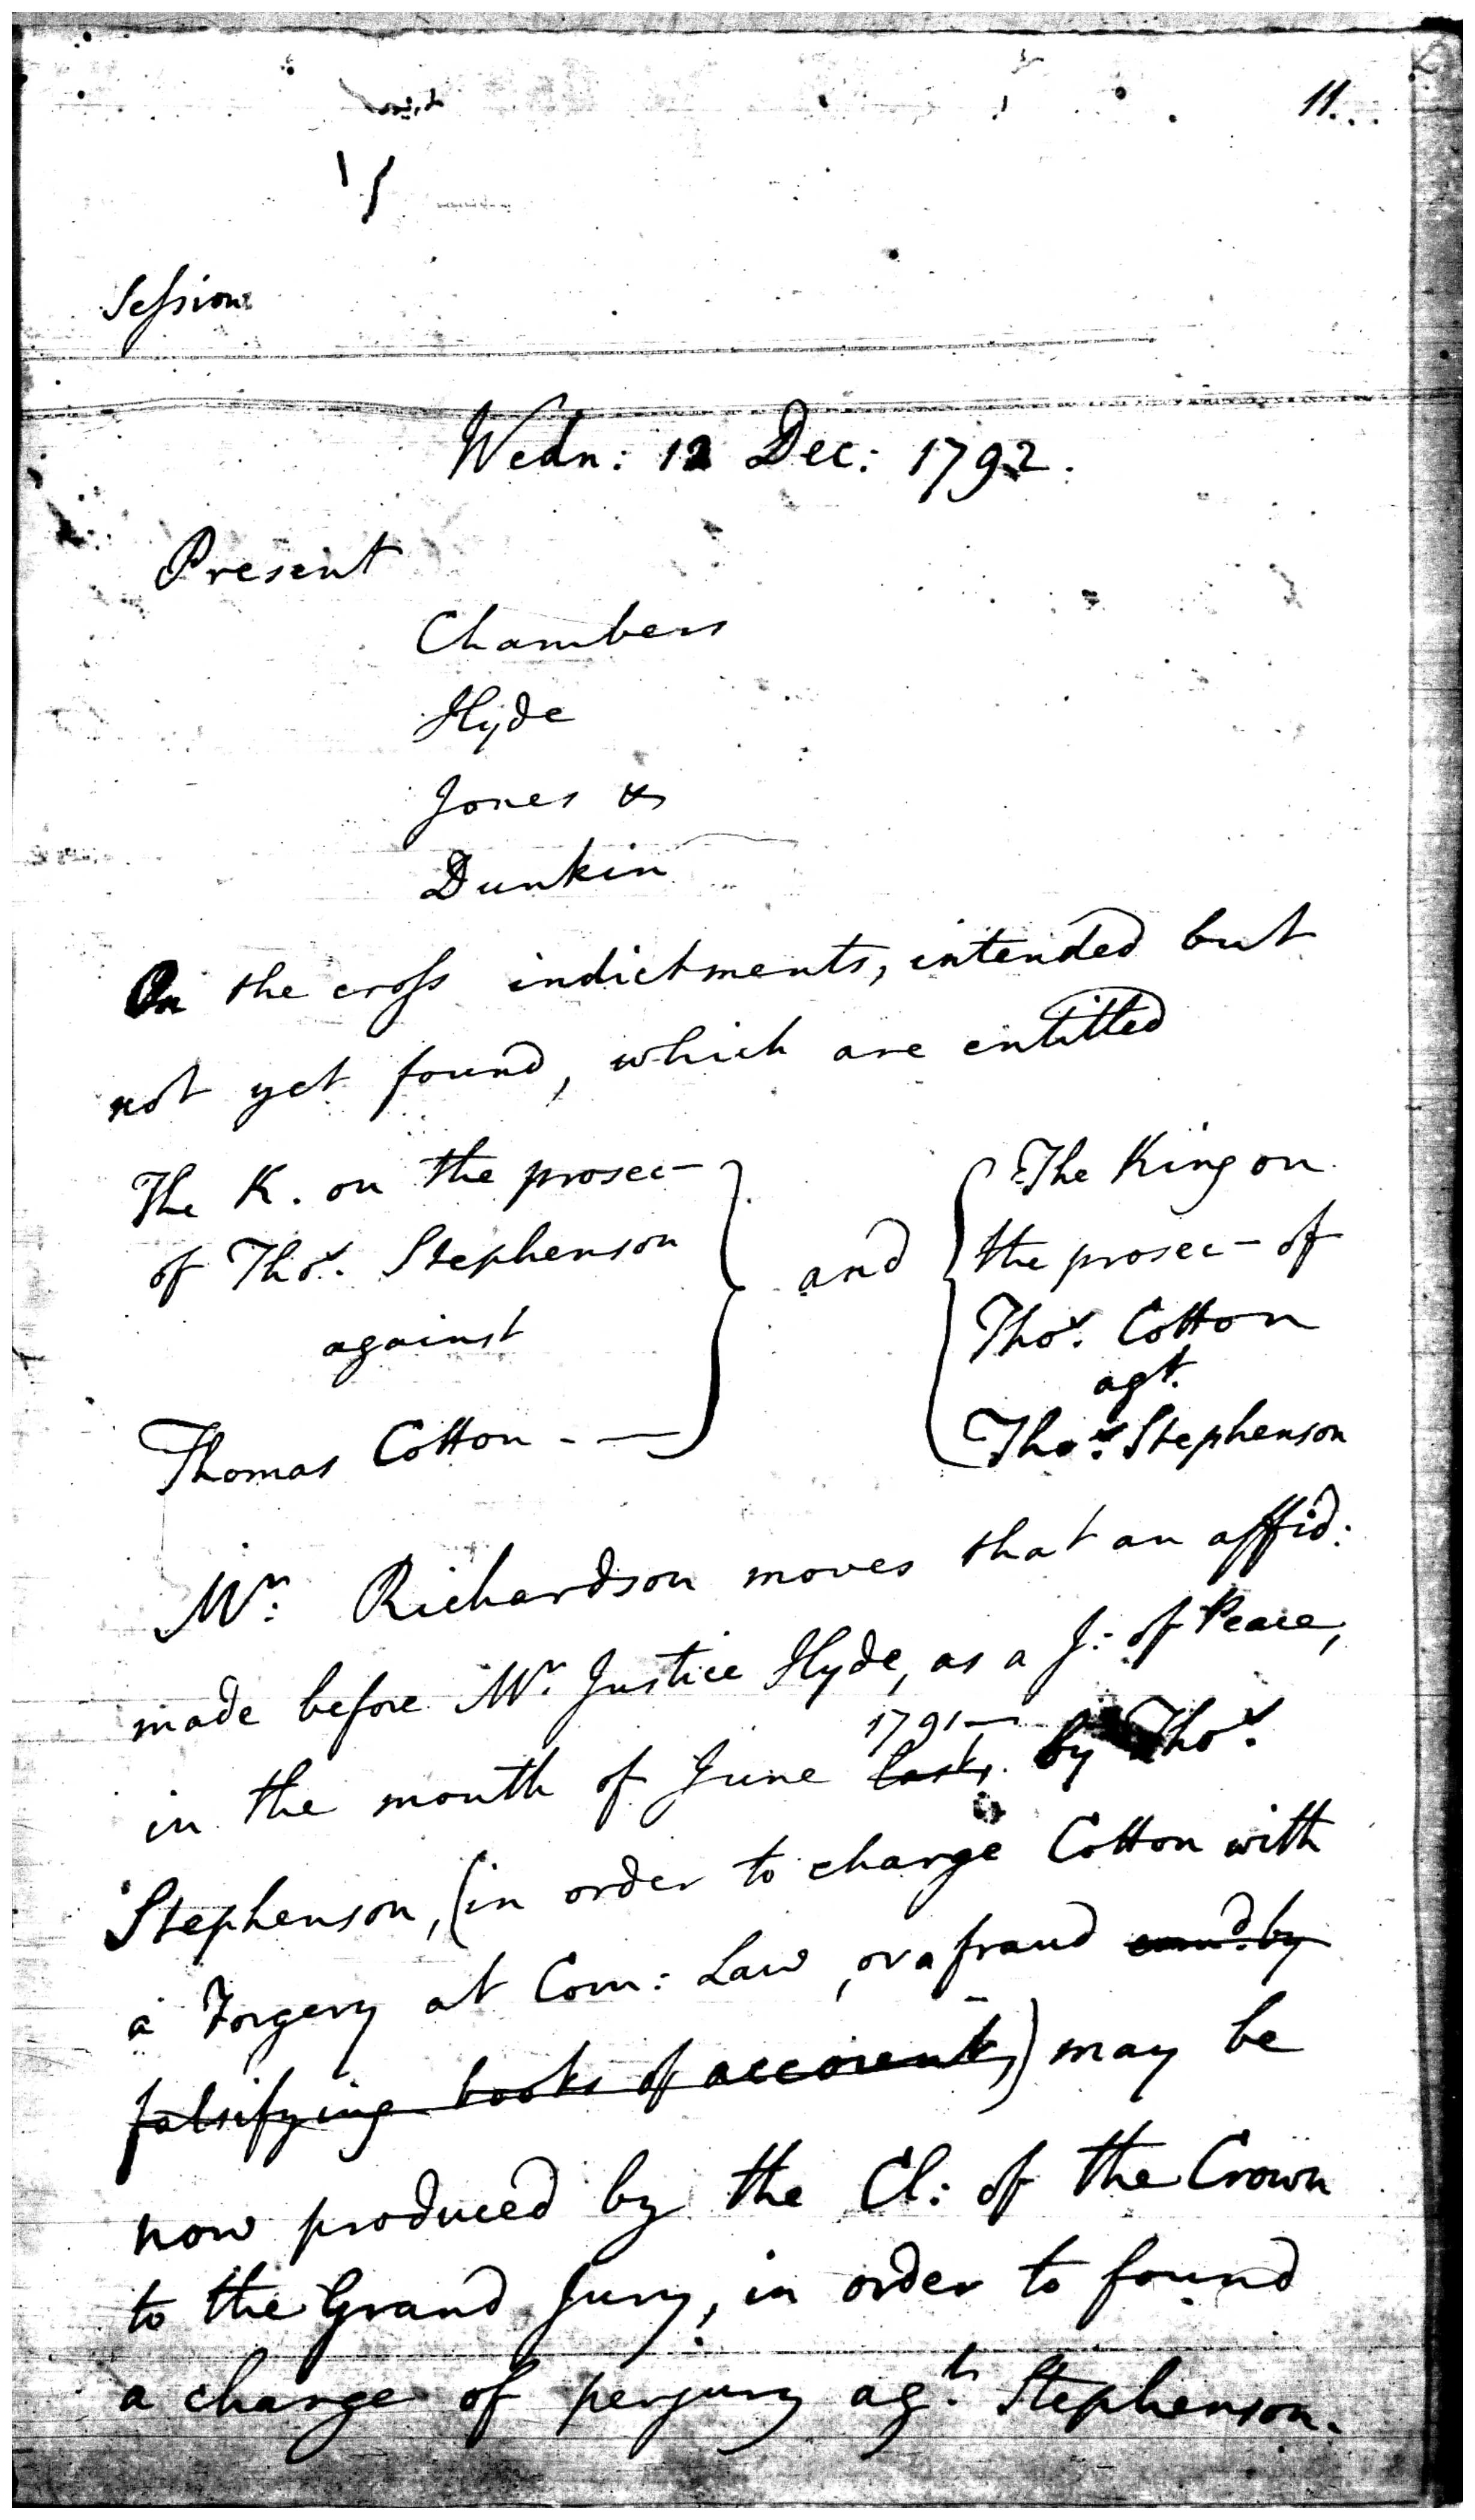 11
Session
Wedn: 12 Dec: 1792.
Present
Chambers
Hyde
Jones &
Dunkin
On the cross indictments, intended but
not yet found, which are entitled
The K. on the prosec-
of Thos. Stephenson
against
Thomas Cotton - —
and
The King on
the prosec- of
Thos. Cotton
agt.
Thos. Stephenson
Mr. Richardson moves that an affid:
made before Mr. Justice Hyde, as a J: of Peace,
1791—
in the month of June last, by Thos.
Stephenson, (in order to charge Cotton with
a Forgery at Com: Law, or a fraud by
falsifying books of accounts,) may be
now produced by the Cl: of the Crown
to the Grand Jury, in order to found
a charge of perjury agt. Stephenson.